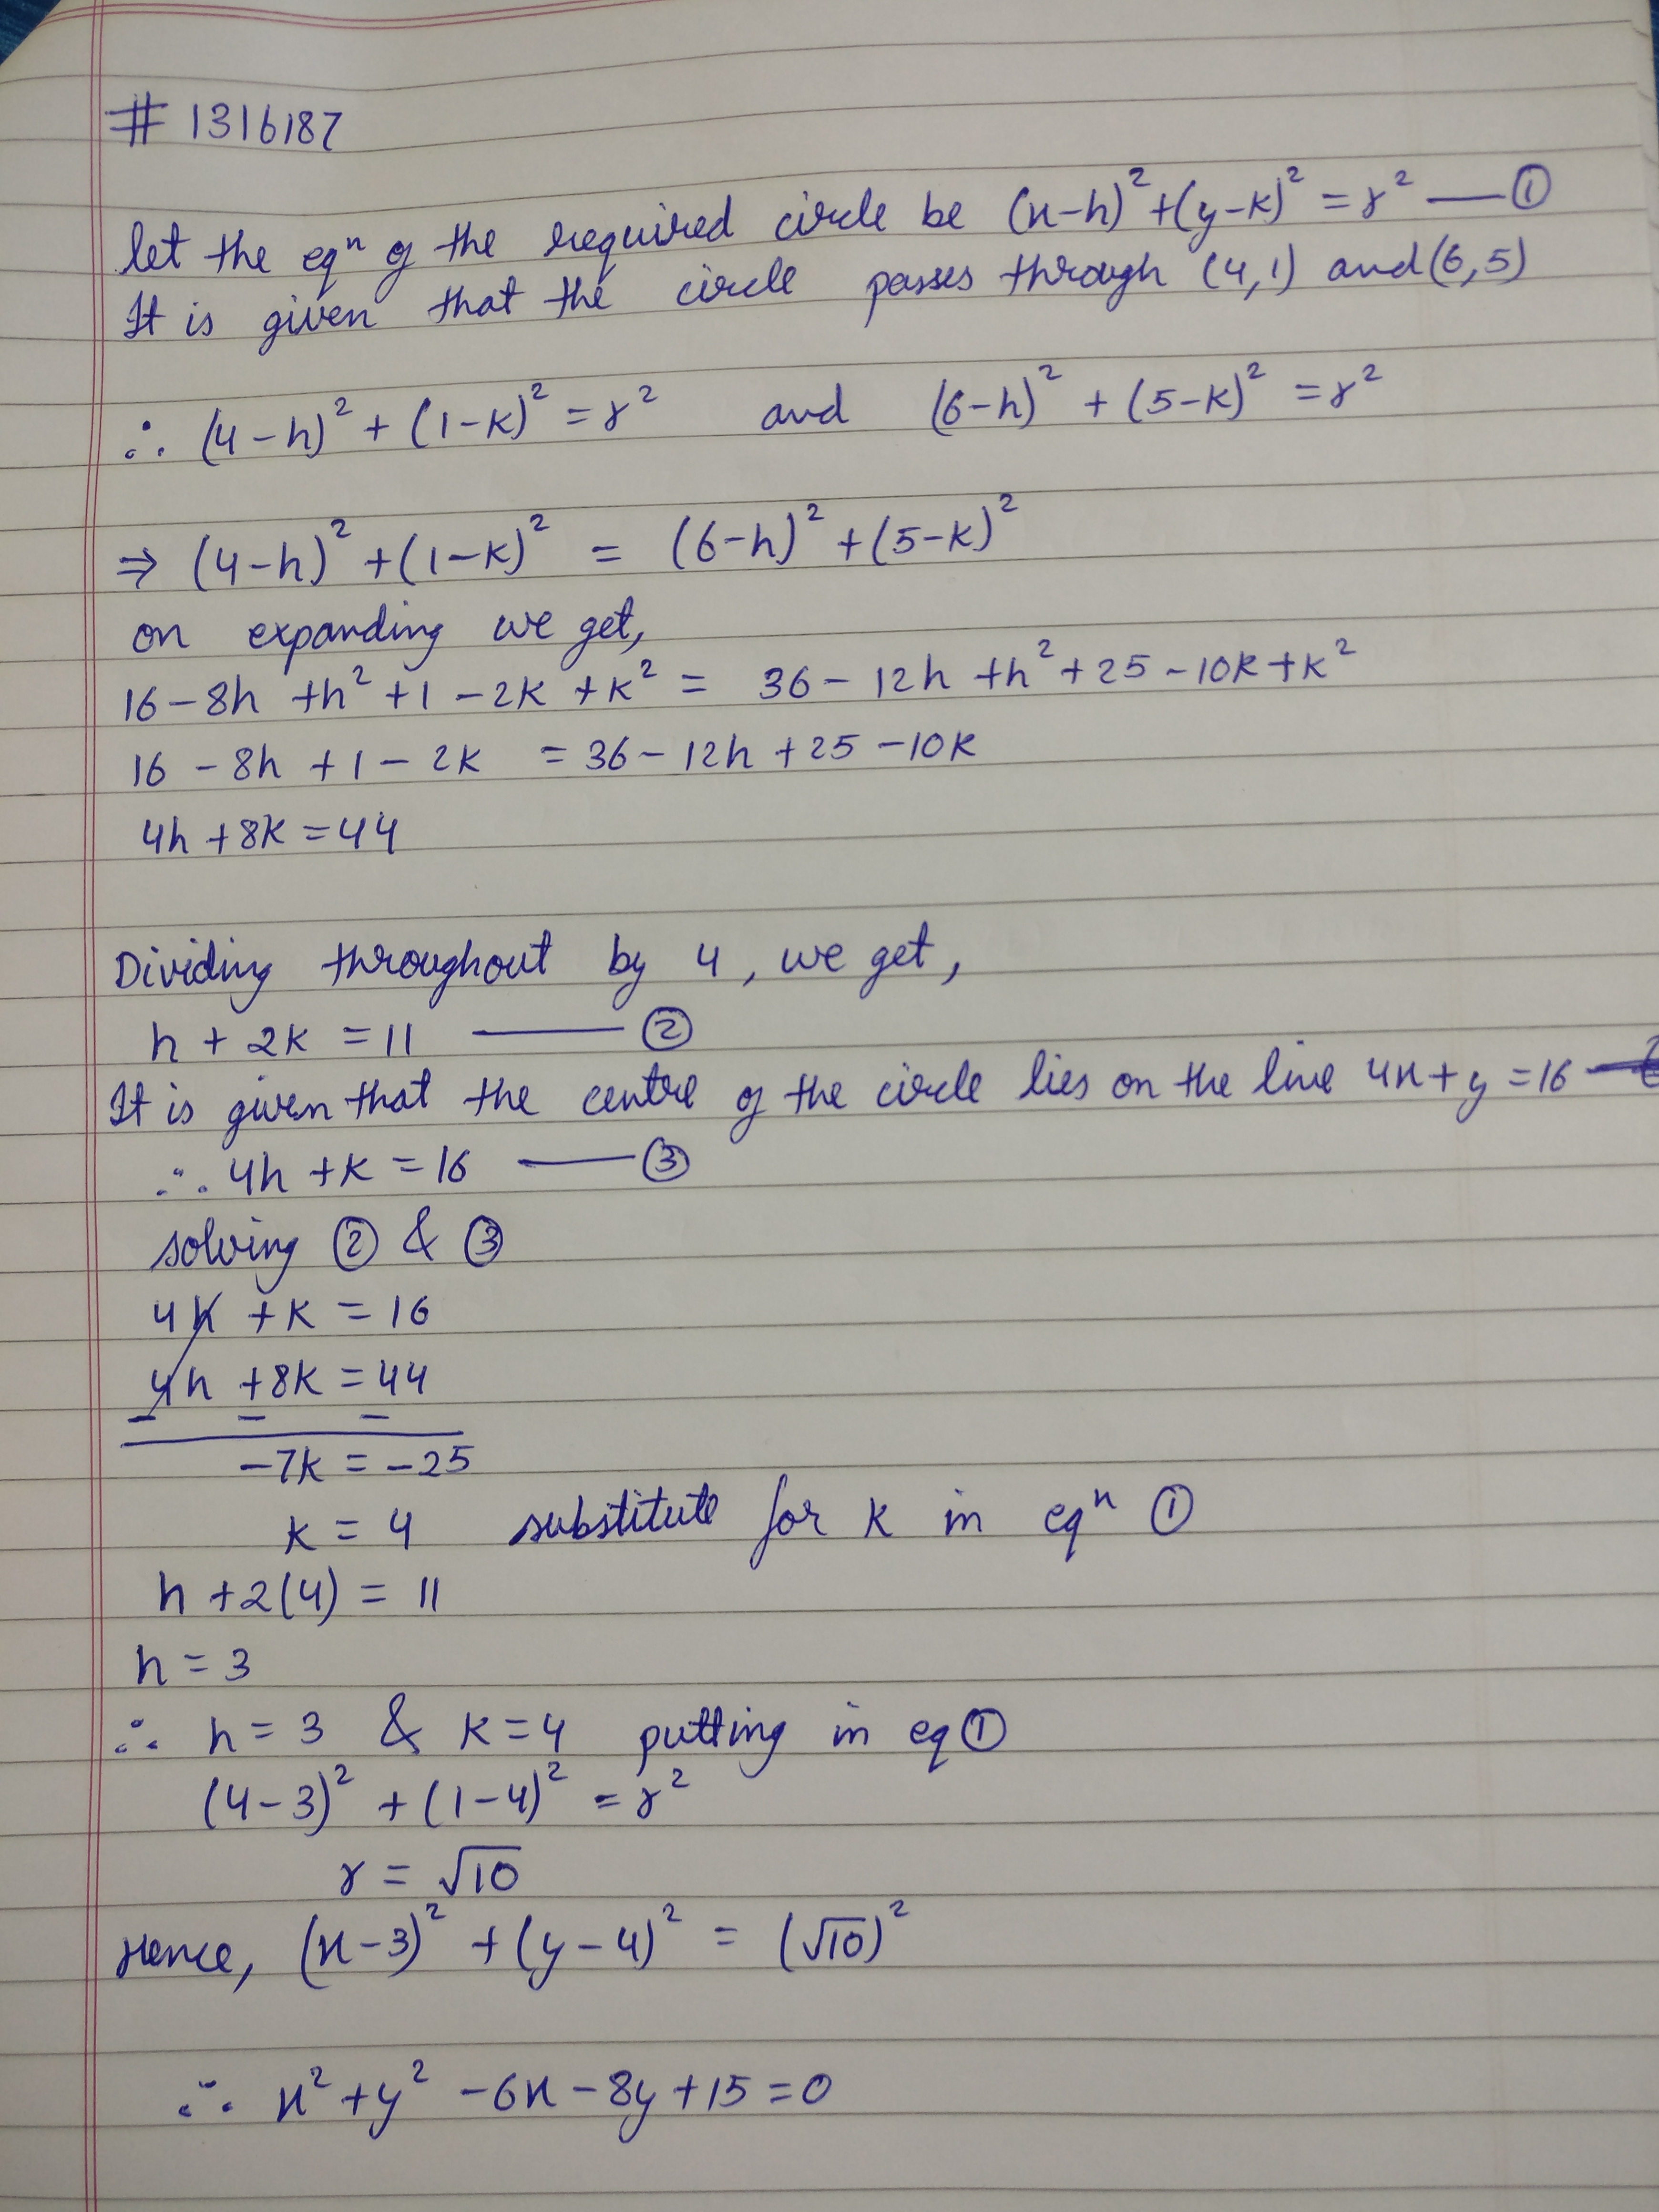 # 1316187
let the eqⁿ of the required circle be (x-h)² + (y-k)² = r² — ①
It is given that the circle passes through (4,1) and (6,5)
∴ (4-h)² + (1-k)² = r² and (6-h)² + (5-k)² = r²
⇒ (4-h)² + (1-k)² = (6-h)² + (5-k)²
on expanding we get,
16 - 8h + h² + 1 - 2k + k² = 36 - 12h + h² + 25 - 10k + k²
16 - 8h + 1 - 2k = 36 - 12h + 25 - 10k
4h + 8k = 44
Dividing throughout by 4, we get,
h + 2k = 11 — ②
It is given that the centre of the circle lies on the line 4x + y = 16
∴ 4h + k = 16 — ③
solving ② & ③
4h + k = 16
4h + 8k = 44
- - -
-7k = -25
k = 4 substitute for k in eqⁿ ①
h + 2(4) = 11
h = 3
∴ h = 3 & k = 4 putting in eq ①
(4-3)² + (1-4)² = r²
r = √10
Hence, (x-3)² + (y-4)² = (√10)²
∴ x² + y² - 6x - 8y + 15 = 0